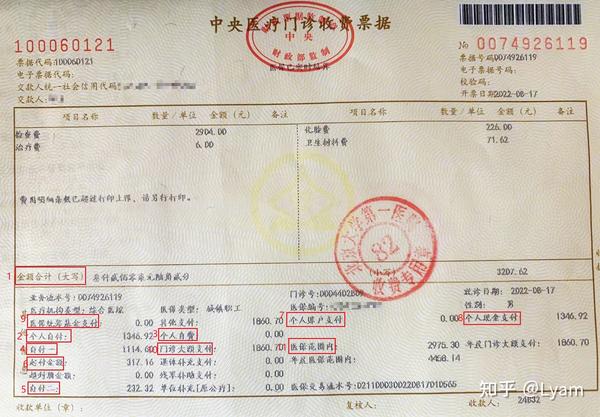 中央医疗门诊收费票据
中央
财政部监制
医保已实时结算
100060121
No 0074926119
票据代码:100060121
票据号码:0074926119
电子票据代码:
电子票据号码:
交款人统一社会信用代码:
校验码:
交款人:
开票日期2022-08-17
项目名称 数量/单位 金额（元） 备注 项目名称 数量/单位 金额（元） 备注
检查费 2904.00 化验费 226.00
治疗费 6.00 卫生材料费 71.62
费用明细条数已超过打印上限，请另行打印。
北京大学第一医院
82
收费专用章
1 金额合计（大写） 叁仟贰佰零柒元陆角贰分 （小写） 3207.62
业务流水号:0074926119 门诊号: 就诊日期: 2022-08-17
医疗机构类型:综合医院 医保类型: 城镇职工 医保编号: 性别: 男
9 医保统筹基金支付 0.00 其他支付: 1860.70 7 个人账户支付 0.00 8 个人现金支付: 1346.92
2 个人自付: 1346.92 3 个人自费 0.00
4 自付一: 1114.60 门诊大额支付: 1860.70 医保范围内: 2975.30 年度门诊大额支付: 1860.70
6 起付金额: 退休补充支付: 0.00 年度医保范围内: 4458.14
超封顶金额 0.00 残军补助支付: 0.00
5 自付二: 232.32 单位补充[原公疗]: 0.00 医保交易流水号:
收款单位（章）: 复核人: 收款人: 24832
知乎 @Lyam